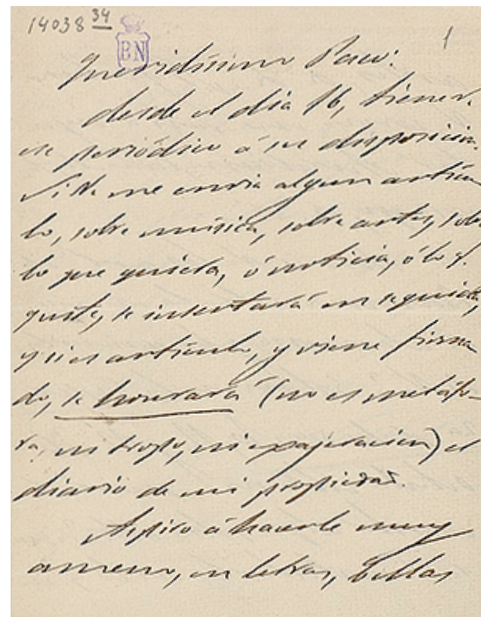 14038 34
1
BN
Queridísimo Paco:
desde el dia 16, tiene V.
un periódico á su disposicion.
Si V. me envia algun artícu
lo, sobre música, sobre artes, sobre
lo que quiera, ó noticia, ó lo q.
guste, se insertará en seguida,
y si es artículo, y viene firma
do, se honrará (no es metáfo-
ra, ni tropo, ni exajeracion) el
diario de mi propiedad.
Aspiro á hacerle muy
ameno, en letras, bellas